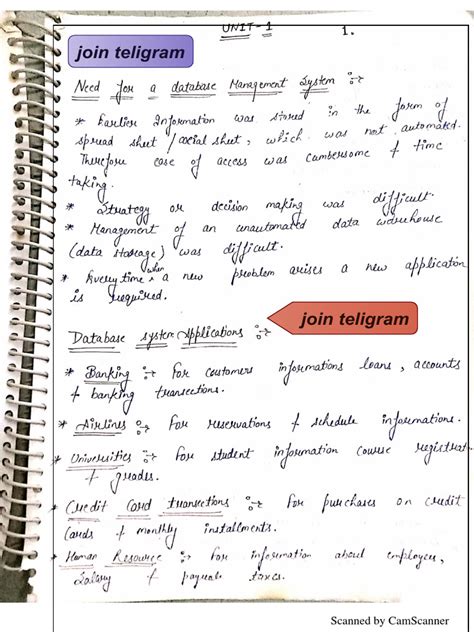 UNIT-1
1.
join teligram
Need for a database Management System :->
* Earlier Information was stored in the form of
spread sheet / axial sheet, which was not automated.
Therefore ease of access was cambersome & time
taking.
* Strategy or decision making was difficult.
* Management of an unautomated data warehouse
(data storage) was difficult.
* Every time when a new problem arises a new application
is required.
join teligram
Database system Applications :->
* Banking :-> For coustomers informations loans, accounts
& banking transections.
* Airlines :-> For reservations & schedule informations.
* Universities :-> For student information course registrat
& grades.
* Credit Card transections :-> For purchases on credit
Cards & monthly installments.
* Human Resource :-> For information about employees,
Salary & payroll taxes.
Scanned by CamScanner